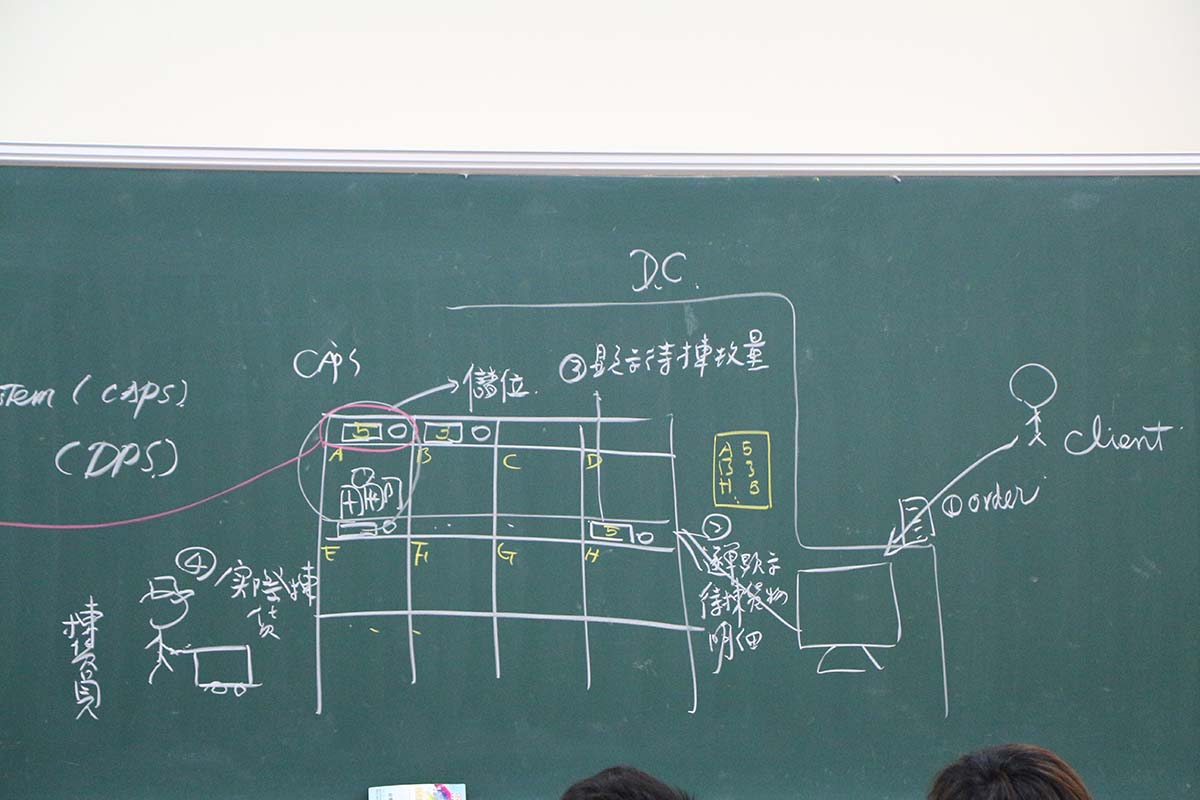 D.C.
CAPS
儲位
③顯示待揀數量
stem (CAPS)
(DPS)
5
3
A
B
C
D
A 5
B 3
H 5
client
①order
5
E
F
G
H
②
逐單顯示
待揀貨物
明細
④實際揀
貨
揀貨員